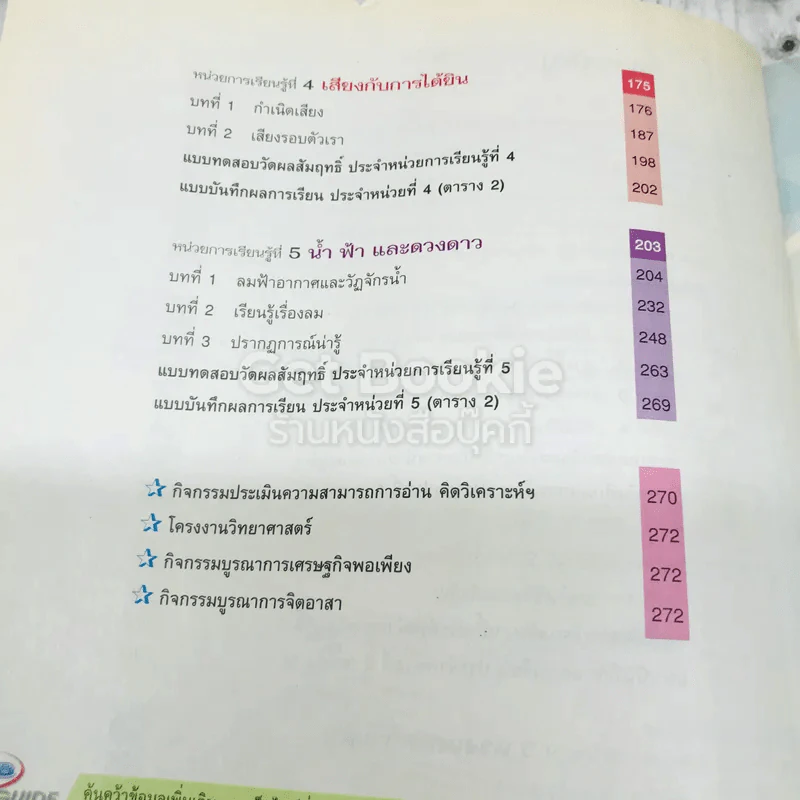 หน่วยการเรียนรู้ที่ 4 เสียงกับการได้ยิน 175
บทที่ 1 กำเนิดเสียง 176
บทที่ 2 เสียงรอบตัวเรา 187
แบบทดสอบวัดผลสัมฤทธิ์ ประจำหน่วยการเรียนรู้ที่ 4 198
แบบบันทึกผลการเรียน ประจำหน่วยที่ 4 (ตาราง 2) 202
หน่วยการเรียนรู้ที่ 5 น้ำ ฟ้า และดวงดาว 203
บทที่ 1 ลมฟ้าอากาศและวัฏจักรน้ำ 204
บทที่ 2 เรียนรู้เรื่องลม 232
บทที่ 3 ปรากฏการณ์น่ารู้ 248
แบบทดสอบวัดผลสัมฤทธิ์ ประจำหน่วยการเรียนรู้ที่ 5 263
Get Bookie
แบบบันทึกผลการเรียน ประจำหน่วยที่ 5 (ตาราง 2) 269
ร้านหนังสือบุ๊คกี้
กิจกรรมประเมินความสามารถการอ่าน คิดวิเคราะห์ฯ 270
โครงงานวิทยาศาสตร์ 272
กิจกรรมบูรณาการเศรษฐกิจพอเพียง 272
กิจกรรมบูรณาการจิตอาสา 272